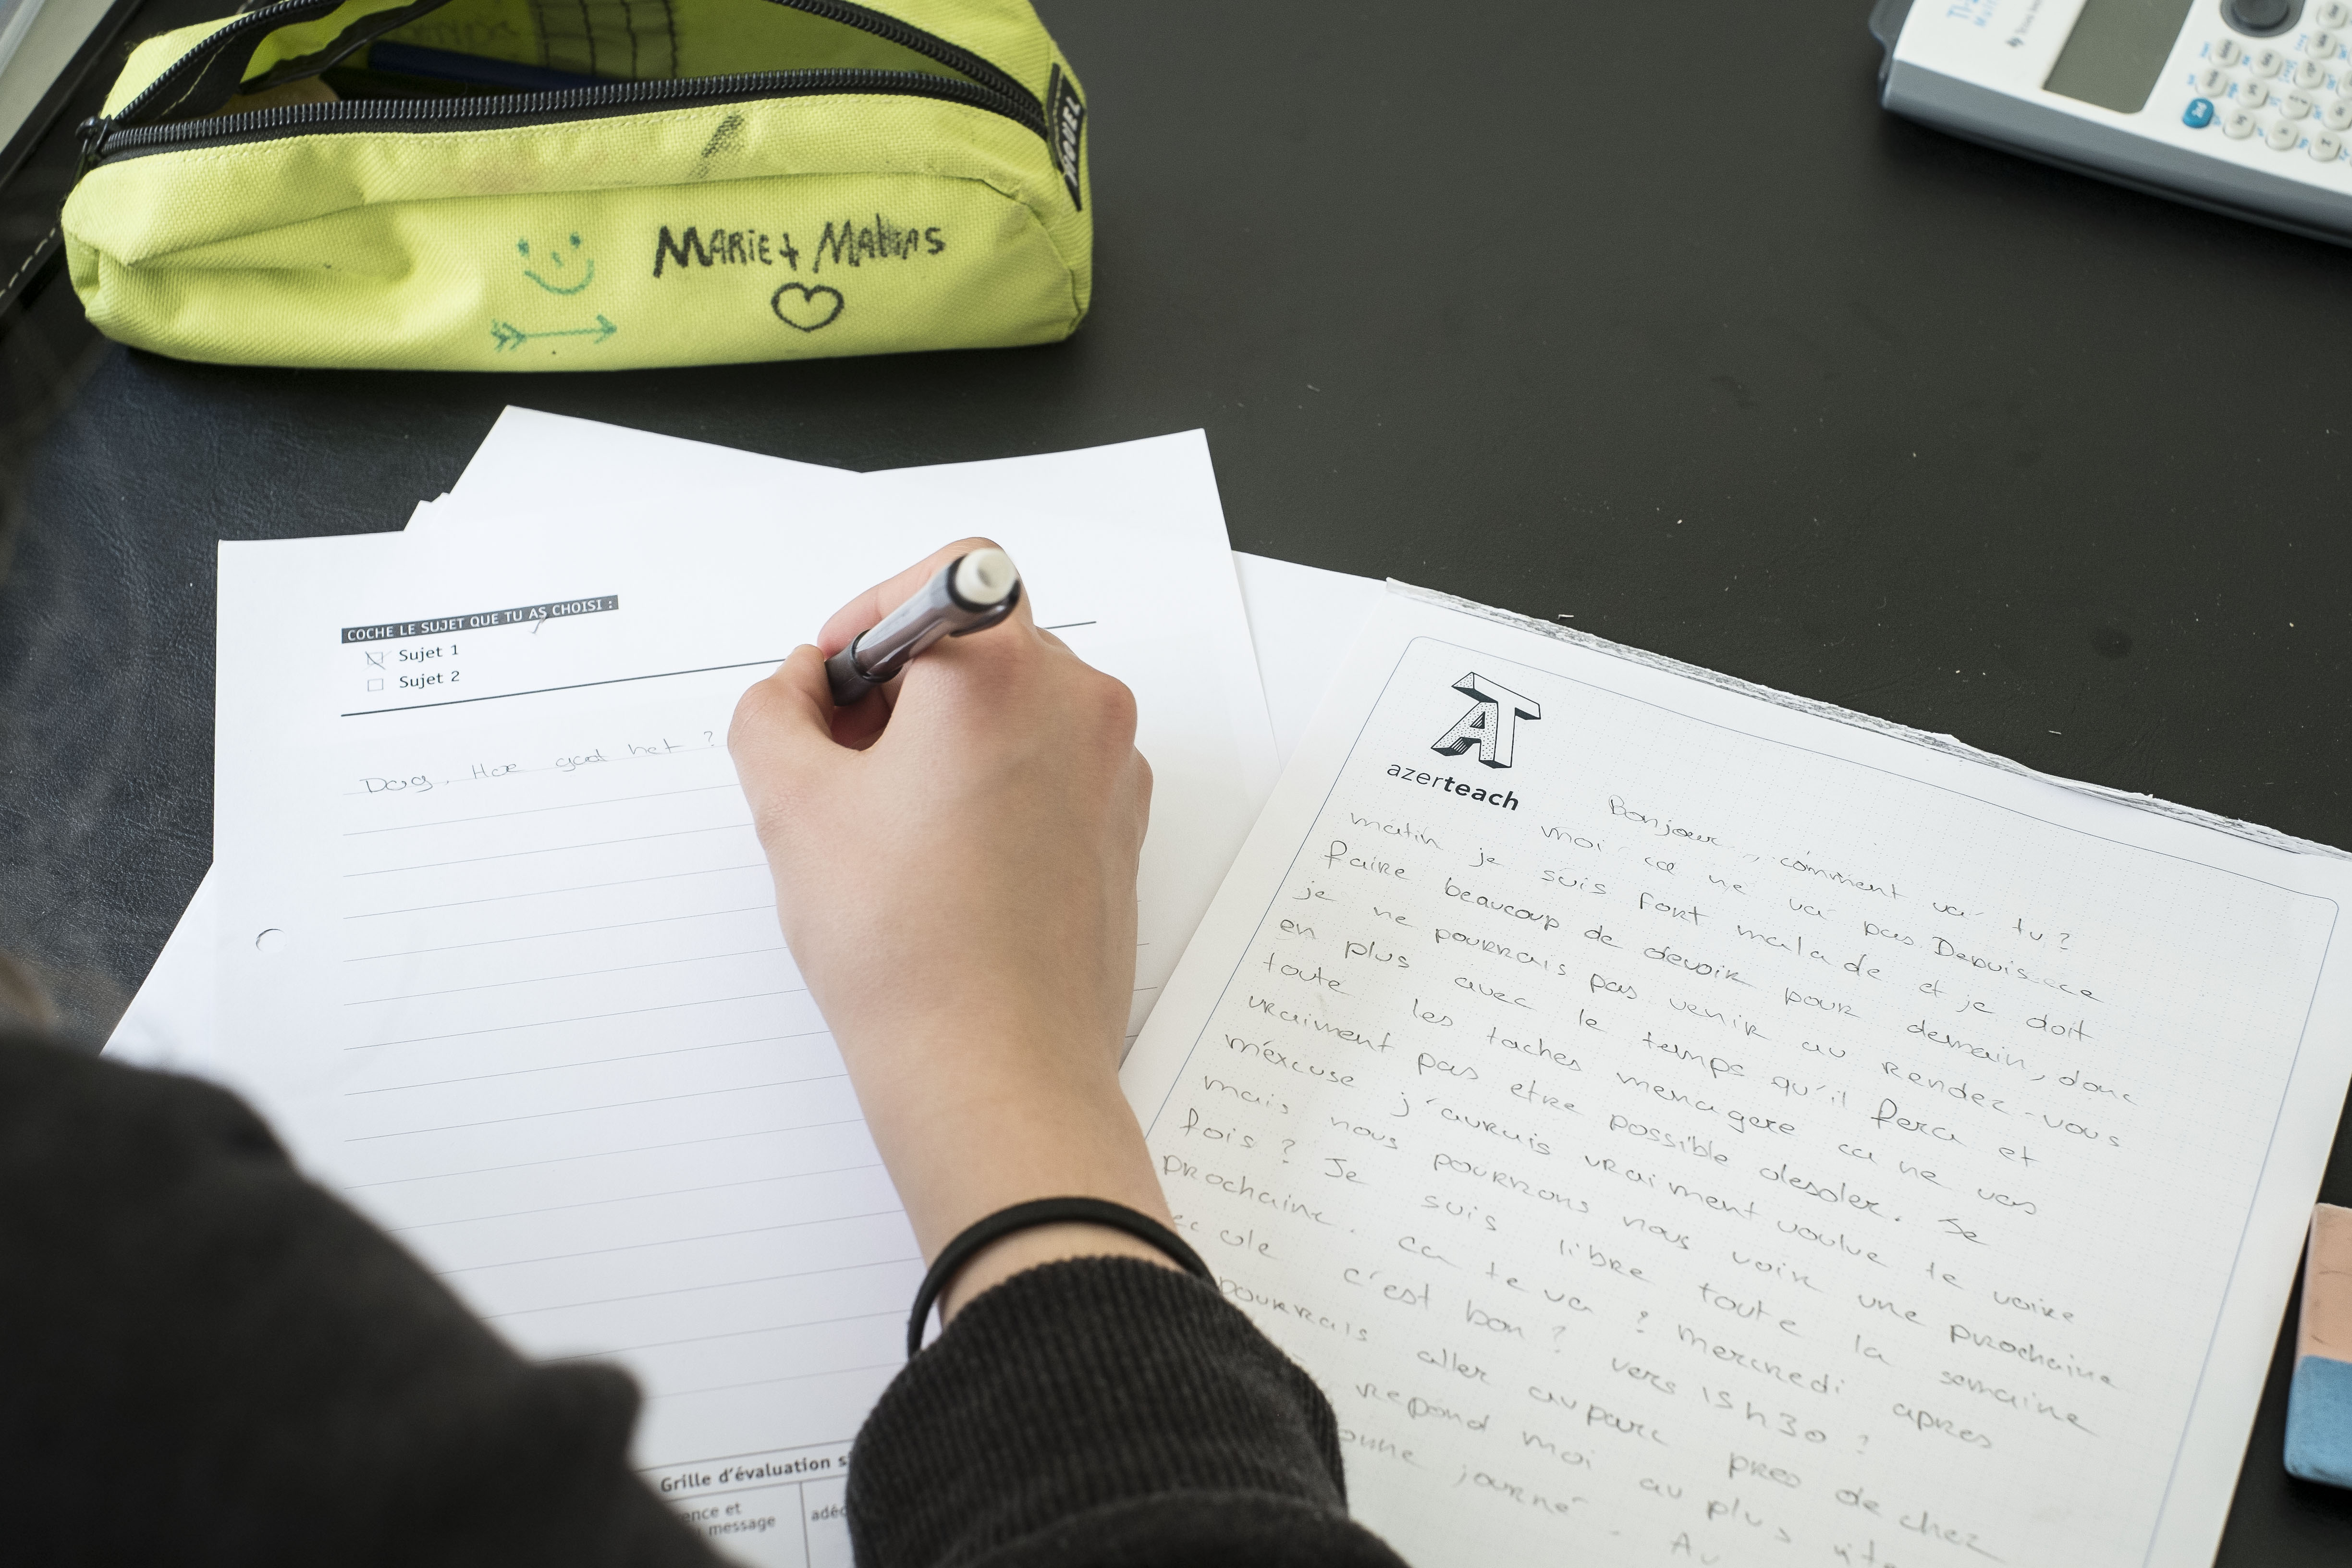 KOUEL
MARIE + MATHIAS
COCHE LE SUJET QUE TU AS CHOISI :
Sujet 1
Sujet 2
Dag, Hoe gaat het ?
Grille d'évaluation
ence et
message
adéq
AT
azerteach
Bonjour, comment va tu ?
moi ca ne va pas. Depuis ce
matin je suis fort malade et je doit
faire beaucoup de devoir pour demain, donc
je ne pourrais pas venir au rendez-vous
en plus avec le temps qu'il fera et
toute les taches menagere ca ne vas
vraiment pas etre possible desoler. Je
m'excuse j'aurais vraiment voulue te voire
mais nous pourrons nous voir une prochaine
fois ? Je suis libre toute la semaine
prochaine. Ca te va ? mercredi apres
ecole c'est bon ? vers 15h30 ?
pourrais aller au parc pres de chez
repond moi au plus vite
onne journé. Au